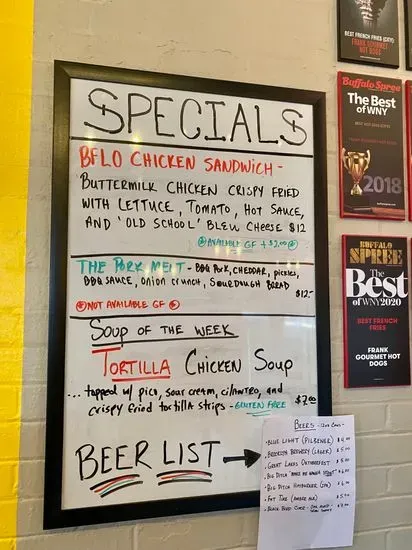 SPECIALS
BFLO CHICKEN SANDWICH -
BUTTERMILK CHICKEN CRISPY FRIED
WITH LETTUCE, TOMATO, HOT SAUCE,
AND 'OLD SCHOOL' BLEU CHEESE $12
AVAILABLE GF + $2.00
THE PORK MELT - BBQ PORK, CHEDDAR, pickles,
BBQ SAUCE, onion crunch, SOURDOUGH BREAD
$12-
NOT AVAILABLE GF
SOUP OF THE WEEK
TORTILLA CHICKEN SOUP
...topped w/ pico, sour cream, cilantro, and
crispy fried tortilla strips - GLUTEN FREE $7.00
BEER LIST
BEERS - 12oz CANS -
- BLUE LIGHT (PILSENER) $4.00
- BROOKLYN BREWERY (LAGER)
- GREAT LAKES OKTOBERFEST
- BIG DITCH MAKE ME WANNA
- BIG DITCH HAYBURNER (IPA)
- FAT TIRE (AMBER ALE)
- BLACK BIRD CIDER -
BEST FRENCH FRIES (CITY)
FRANK
GOURMET
HOT DOGS
Buffalo Spree
The Best
of WNY
2018
BUFFALO
SPREE
The
Best
OF WNY2020
BEST FRENCH
FRIES
FRANK
GOURMET HOT
DOGS